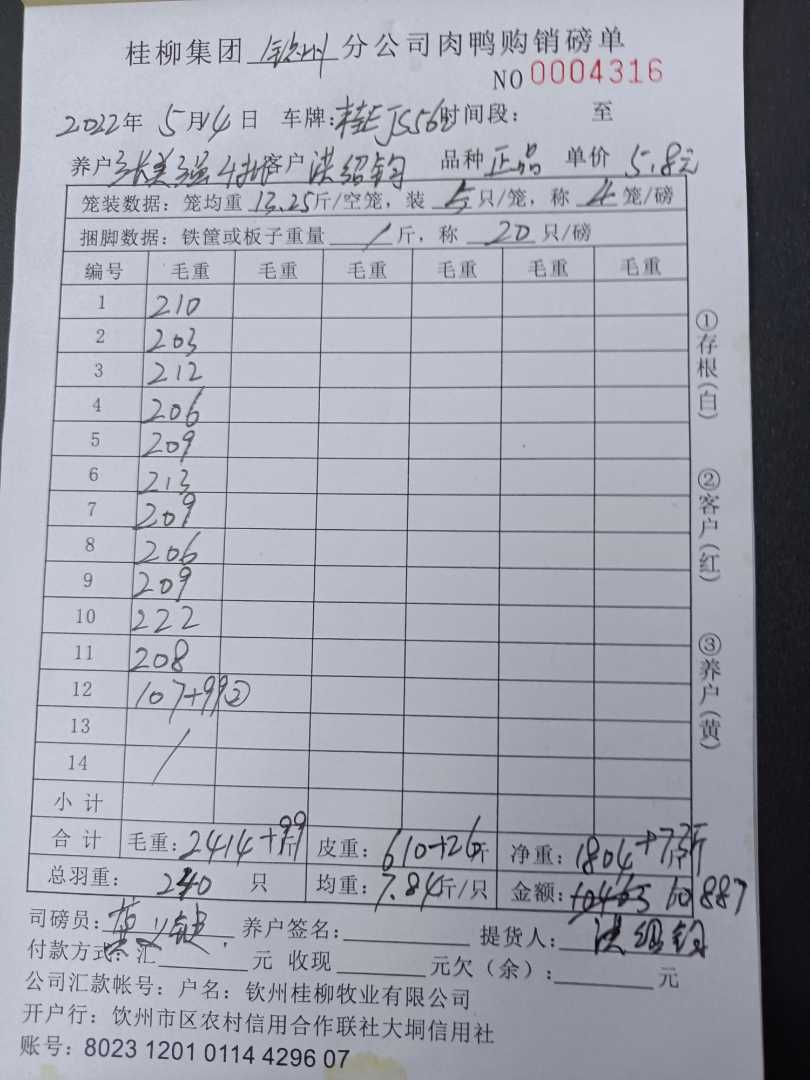 桂柳集团 钦州 分公司肉鸭购销磅单
NO 0004316
2022年 5月14日 车牌:桂EJS562 时间段: 至
养户 张美强 4批 客户 洪绍钧 品种 正品 单价 5.8元
笼装数据: 笼均重 13.25斤/空笼, 装 5只/笼, 称 4笼/磅
捆脚数据: 铁筐或板子重量 / 斤, 称 20 只/磅
编号 毛重 毛重 毛重 毛重 毛重 毛重
1 210
2 203
3 212
4 206
5 209
6 213
7 209
8 206
9 209
10 222
11 208
12 107+99②
13
14 /
小计
合计 毛重: 2414+99斤 皮重: 610+26斤 净重: 1804+73斤
总羽重: 240 只 均重: 7.84斤/只 金额: 10887
司磅员: 养户签名: 提货人: 洪绍钧
付款方式: 汇 元 收现 元欠(余): 元
公司汇款帐号: 户名: 钦州桂柳牧业有限公司
开户行: 饮州市区农村信用合作联社大垌信用社
账号: 8023 1201 0114 4296 07
①存根(白)
②客户(红)
③养户(黄)